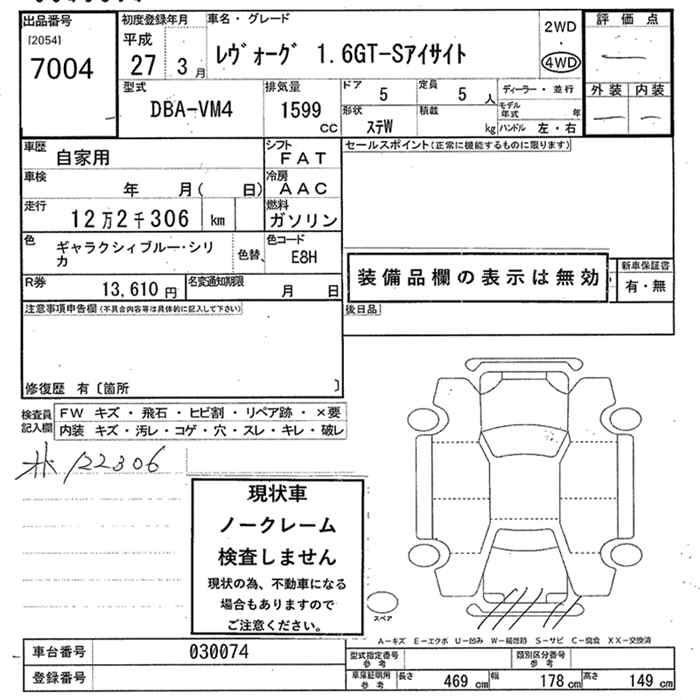 出品番号
[2054]
7004
初度登録年月
平成
27 3月
車名・グレード
レヴォーグ 1.6GT-Sアイサイト
2WD
・
4WD
評価点
外装 内装
型式
DBA-VM4
排気量
1599
cc
ドア
5
定員
5人
形状
ステW
積載
kg
ディーラー・並行
モデル年式 年
ハンドル 左・右
車歴
自家用
シフト
FAT
車検
年 月( 日)
冷房
AAC
走行
12万2千306 km
燃料
ガソリン
色
ギャラクシィブルー・シリカ
色替、
色コード
E8H
R券
13,610 円
名変通知期限
月 日
セールスポイント(正常に機能するものに限ります)
装備品欄の表示は無効
新車保証書
有・無
注意事項申告欄(不具合内容等は具体的に記入して下さい)
後日品
修復歴 有〔箇所 〕
検査員記入欄
FW キズ・飛石・ヒビ割・リペア跡・×要
内装 キズ・汚レ・コゲ・穴・スレ・キレ・破レ
122306
現状車
ノークレーム
検査しません
現状の為、不動車になる
場合もありますので
ご注意ください。
スペア
A-キズ E-エクボ U-凹み W-補修跡 S-サビ C-腐食 XX-交換済
車台番号
030074
登録番号
型式指定番号
参考
類別区分番号
参考
車庫証明用
参考
長さ 469 cm
幅 178 cm
高さ 149 cm